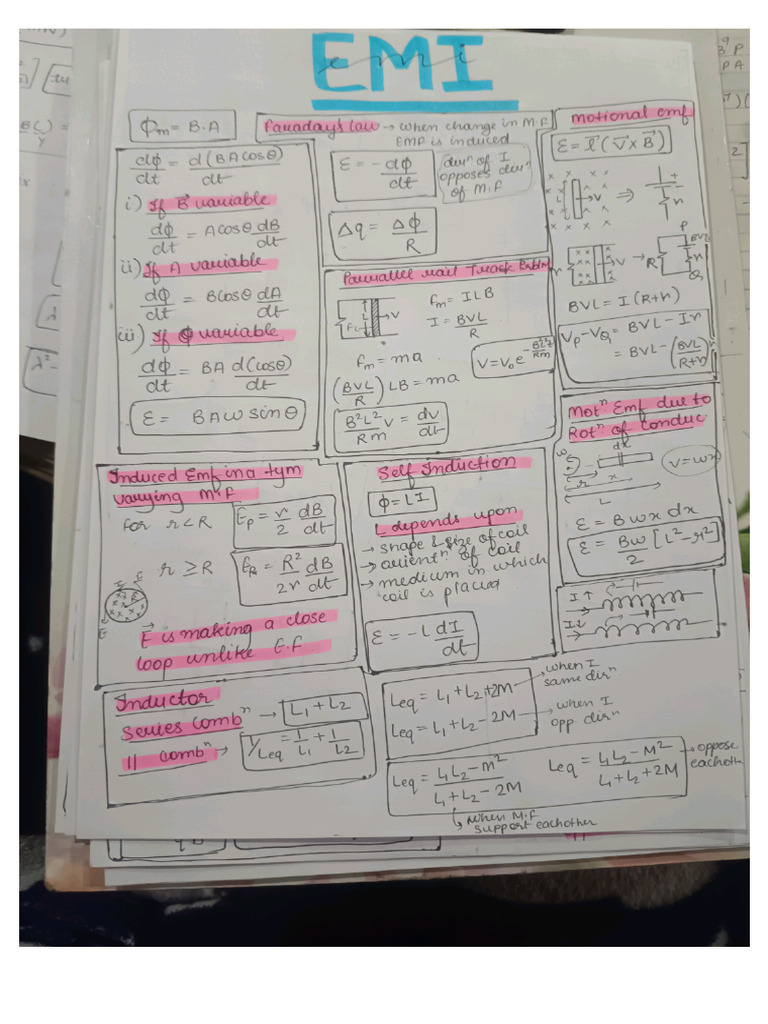 EMI
emi
Φm = B.A
dΦ/dt = d(BA cosθ)/dt
i) If B variable
dΦ/dt = A cosθ dB/dt
ii) If A variable
dΦ/dt = B cosθ dA/dt
iii) If Φ variable
dΦ/dt = BA d(cosθ)/dt
ε = BAω sinθ
Faraday's law → when change in M.F
EMF is induced
ε = -dΦ/dt
dirⁿ of I
opposes dirⁿ
of M.F
Δq = ΔΦ/R
Parrallel rail Track Prblm
L
→ V
fm = ILB
I = BVL/R
fm = ma
(BVL/R) LB = ma
B²L²/Rm v = dv/dt
Motional emf
ε = l⃗ (V⃗ x B⃗)
x x x x
L
→ V
⇒
+
r
→ V
→
P
R
BVL
r
Q
BVL = I(R+r)
Vp - VQ = BVL - Ir
= BVL - (BVL/R+r) r
Motⁿ Emf due to
Rotⁿ of conduc
ω
dx
r
x
L
ε = Bωx dx
ε = Bω/2 [L² - r²]
Induced Emf in a tym
varying M.F
for r < R
Ep = r/2 dB/dt
r ≥ R
ER = R²/2r dB/dt
E
E⃗ is making a close
loop unlike E.F
Self Induction
Φ = LI
L depends upon
→ shape & size of coil
→ orientⁿ of coil
→ medium in which
coil is placed
ε = -L dI/dt
I↑
I↓
Inductor
series combⁿ → L₁ + L₂
|| combⁿ → 1/Leq = 1/L₁ + 1/L₂
Leq = L₁ + L₂ + 2M → when I
same dirⁿ
Leq = L₁ + L₂ - 2M → when I
opp. dirⁿ
Leq = L₁L₂ - M²/L₁ + L₂ - 2M
↳ when M.F
support eachother
Leq = L₁L₂ - M²/L₁ + L₂ + 2M
→ oppose
eachoth